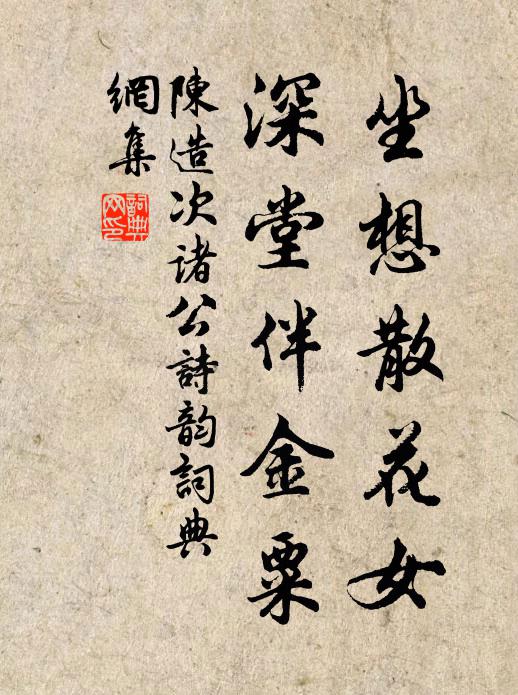 坐想散花女
深堂伴金粟
陳造次諸公詩韵詞典
網集
詞典
网印